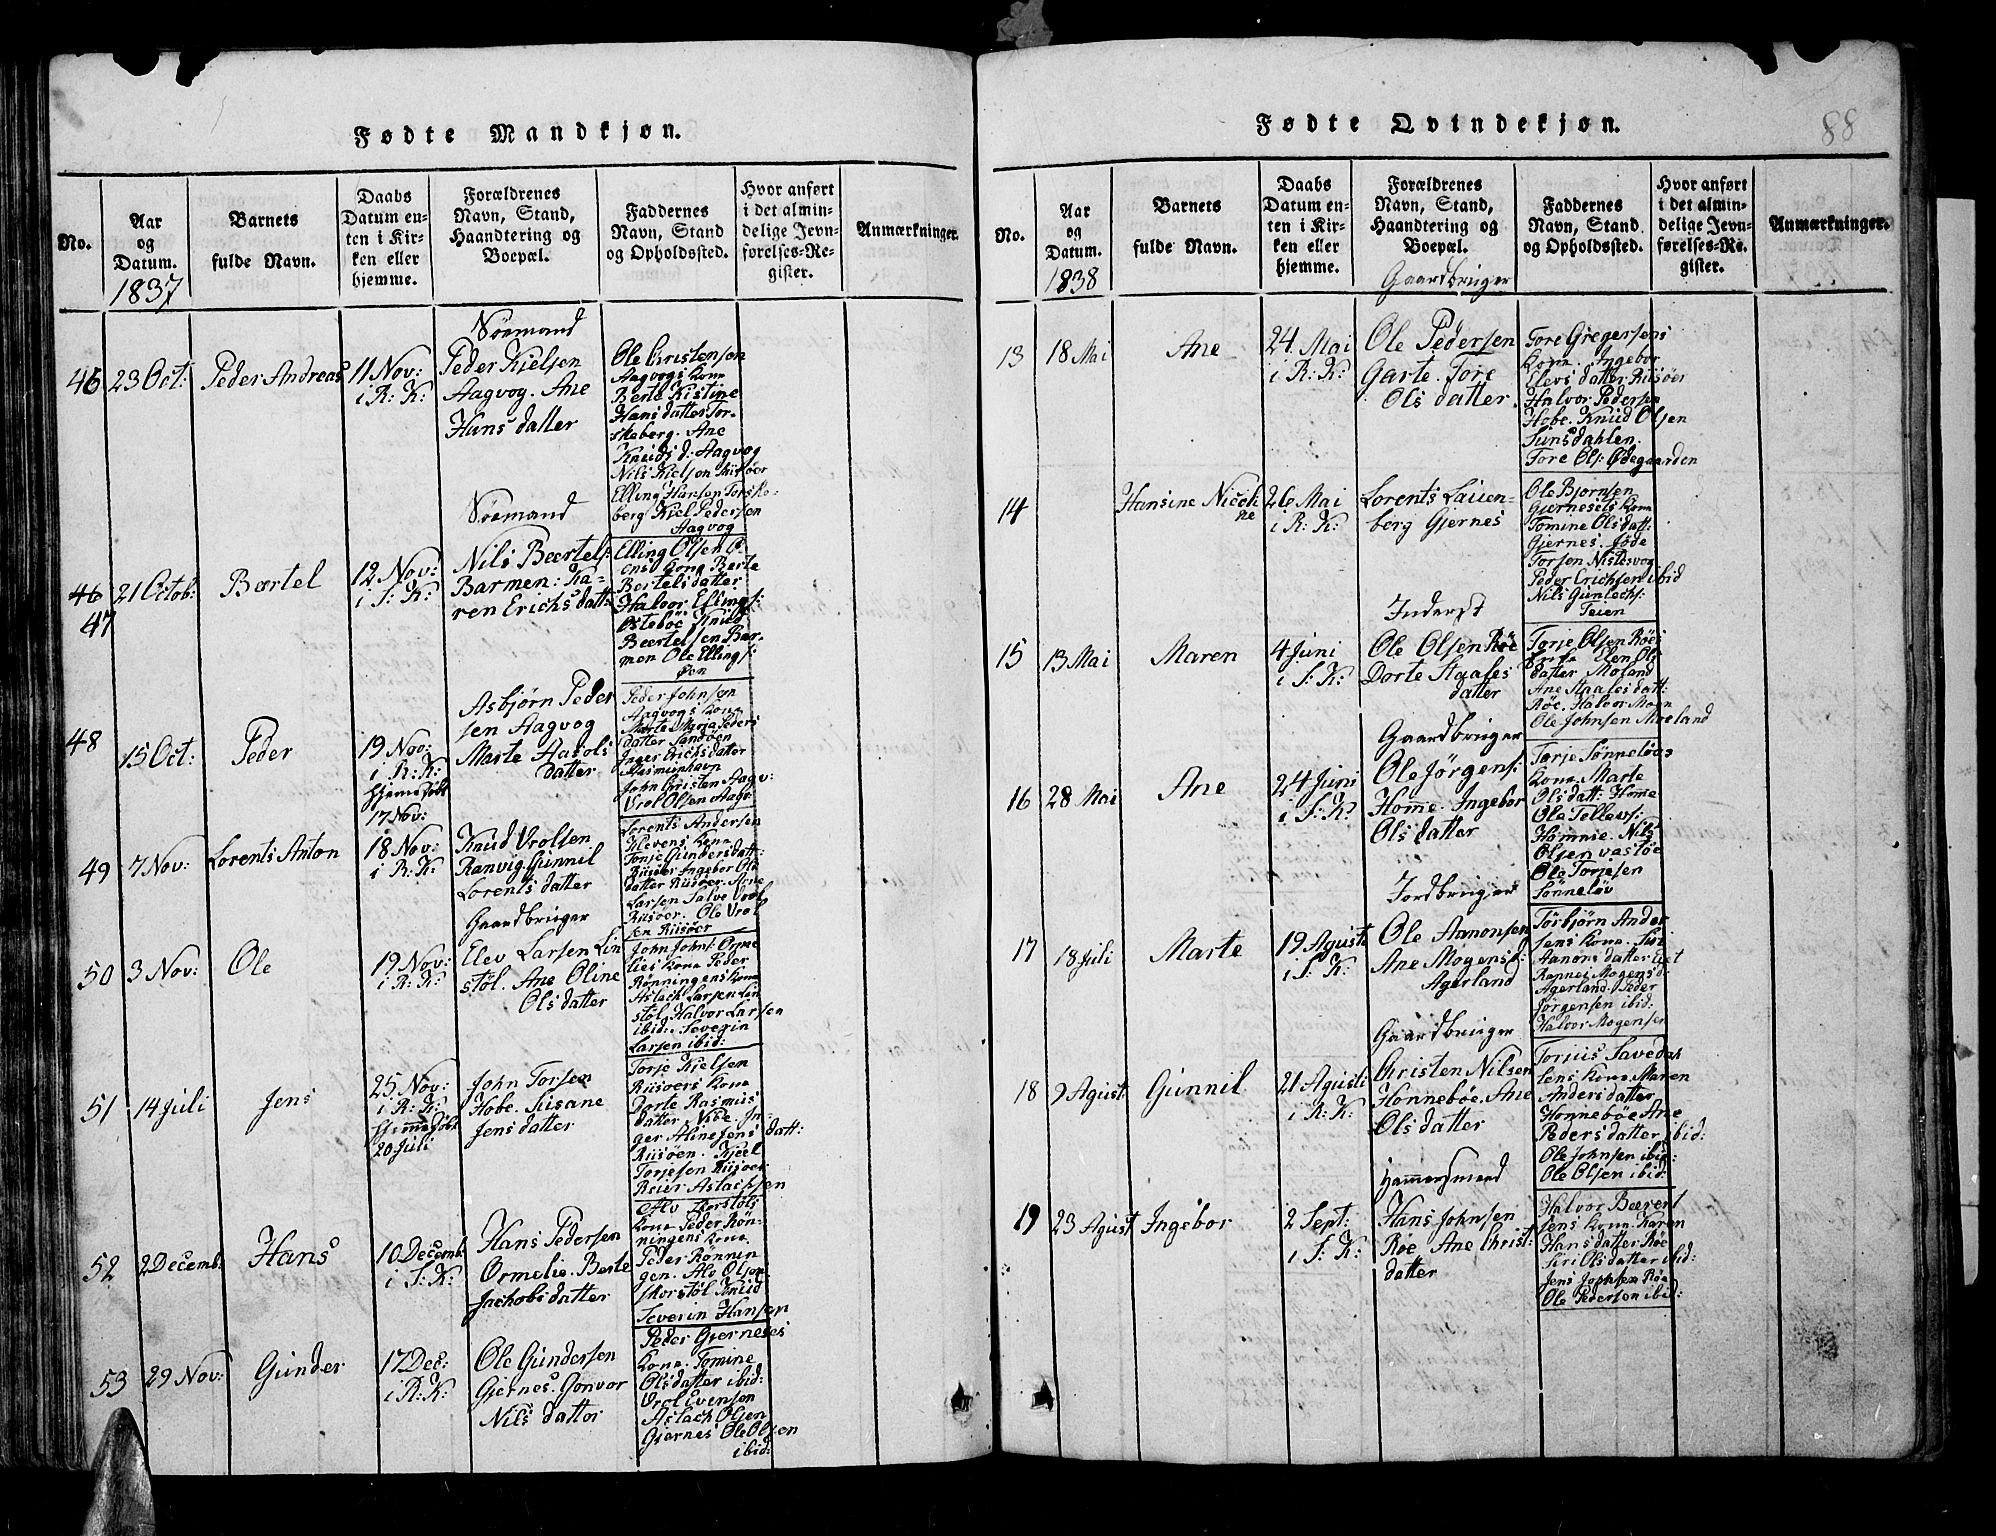 Fødte Mandkjøn.
No.
Aar
og
Datum.
1837
Barnets
fulde Navn.
Daabs
Datum en-
ten i Kir-
ken eller
hjemme.
Forældrenes
Navn, Stand,
Haandtering og
Boepæl.
Faddernes
Navn, Stand
og Opholdssted.
Hvor anført
i det almin-
delige Jevn-
førelses-Re-
gister.
Anmærkninger.
46
23 Oct:
Peder Andreas
11 Nov:
i R: K:
Nösmand
Peder Kielsen
Aagvog. Ane
Hans datter
Ole Christensen
Aagvogs Kona
Berte Kistine
Hans datter Tor-
skeberg. Ane
Knuds d: Aagvog
Nils Kielsen
Elling Hansen Torske-
berg Kiel Pedersen
Aagvog
46
47
21 Octob:
Bærtel
12 Nov:
i S: K:
Nösmand
Nils Beertels:
Barmen: Ka-
ren Erichs datt:
Elling Olsen
Kona Berte
Bertels datter
Halvor Ellings:
Östeböe Knud
Beertelsen Bar-
men Ole Ellings:
48
15 Oct:
Peder
19 Nov:
i R: K:
Hjemedöbt
17 Nov:
Asbjørn Peder
sen Aagvog
Marte Harols
datter
Peder Johnsen
Aagvogs Kona
Marte Maria Peders
datter Sandöen
Inger Erichs datter
Rasmushavn
John Christen Aagv:
Vrol Olsen Aagv:
49
7 Nov:
Lorents Anton
18 Nov:
i R: K:
Knud Vrolsen
Ranvig Gunnil
Lorents datter
Lorents Andersen
Klevens Kona
Tonje Gunders datt:
Riisöer Ingebor Ols
datter Riisöer. Arne
Larsen Salve Vrols
Riisöer. Ole Vrol
sen Riisöer
50
3 Nov:
Ole
19 Nov:
i R: K:
Gaardbruger
Elev Larsen Lin
stöl. Ane Oline
Ols datter
John Johns: Orme
lies Kona Peder
Rönningens Kona
Aslach Larsen Lin
stöl. Halvor Larsen
ibid: Severin
Larsen ibid:
51
14 Juli
Jens
25 Nov:
i R: K:
Hjemme Döbt
20 Juli
John Torsen
Hobe. Susane
Jens datter
Torje Kielsen
Riisöers Kona
Dorte Rasmus
datter. Vibe In-
ger Aline Jens datt:
Riisöen. Kjeel
Torjesen Riisöer
Reier Aslachsen
52
2 Decemb:
Hans
10 Decemb:
i S: K:
Hans Pedersen
Ormelie. Berte
Jachobs datter
Alv Skorstöls
Kona Peder Rön-
ningens Kona
Peder Rönnin
gen. Alv Olsen
Skorstöl Knud
Severin Hansen
53
29 Nov:
Gunder
17 Dec:
i R: K:
Ole Gundersen
Gjernes. Gonvor
Nils datter
Peder Gjerneses
Kona. Tomine
Ols datter ibid:
Vrol Evensen
Aslach Olsen
Gjernes Ole Olsen
ibid:
Fødte Qvindekjøn.
88
No.
Aar
og
Datum.
1838
Barnets
fulde Navn.
Daabs
Datum en-
ten i Kir-
ken eller
hjemme.
Forældrenes
Navn, Stand,
Haandtering og
Boepæl.
Faddernes
Navn, Stand
og Opholdssted.
Hvor anført
i det almin-
delige Jevn-
førelses-Re-
gister.
Anmærkninger.
13
18 Mai
Ane
24. Mai
i R: K:
Gaardbruger
Ole Pedersen
Garte. Tore
Ols datter.
Tore Gregersens
Kona. Ingebor
Elevs datter Riisöer
Halvor Pedersen
Hobe. Knud Olsen
Sunsdahlen.
Tore Ols: Ödegaarden
14
Hansine Nicoli
ne
26 Mai
i R: K:
Lorents Lauen-
berg Gjernes
Ole Bjornsen
Gjerneses Kona
Tomine Ols datt:
Gjernes. Jöde
Torsen Nistesvog
Peder Erichsen ibid
Nils Gunlechs:
Teien
15
13 Mai
Maren
4 Juni
i S: K:
Inderst
Ole Olsen Röe
Dorte Staales
datter
Torje Olsen Röes
Elen Ols
datter Moland
Ane Staales datt:
Röe. Halvor Mogn
Ole Johnsen Moeland
16
28 Mai
Ane
24 Juni
i S: K:
Gaardbruger
Ole Jörgens:
Home. Ingebor
Ols datter
Torje Sönnelövs
Kona. Marte
Ols datt: Home
Ole Tellevs:
Homme. Nils
Olsen vastöe
Ole Torjesen
Sönnelöv
17
18 Juli
Marte
19 Agusti
i S: K:
Jordbruger
Ole Aanonsen
Ane Mogens d:
Agerland
Torbjörn Ander
sens Kona. Siri
Aanons datter
Rannei Mogens d:
Agerland. Peder
Jörgensen ibid:
Halvor Mogensen
18
9 Agust
Gunnil
21 Agusti
i R: K:
Gaardbruger
Christen Nilsen
Honneböe. Ane
Ols datter
Torjus Saveda
sens Kona Maren
Anders datter
Honneböe Ane
Peders datter ibid:
Ole Johnsen ibid:
Ole Olsen ibid:
19
23 Agust
Ingebor
2 Sept:
i S: K:
Hammersmed
Hans Johnsen
Röe Ane Christ:
datter
Halvor Beerent
sens Kona. Karen
Hans datter Röe
Siri Ols datter ibid:
Jens Jophsen Röe
Ole Pedersen ibid: